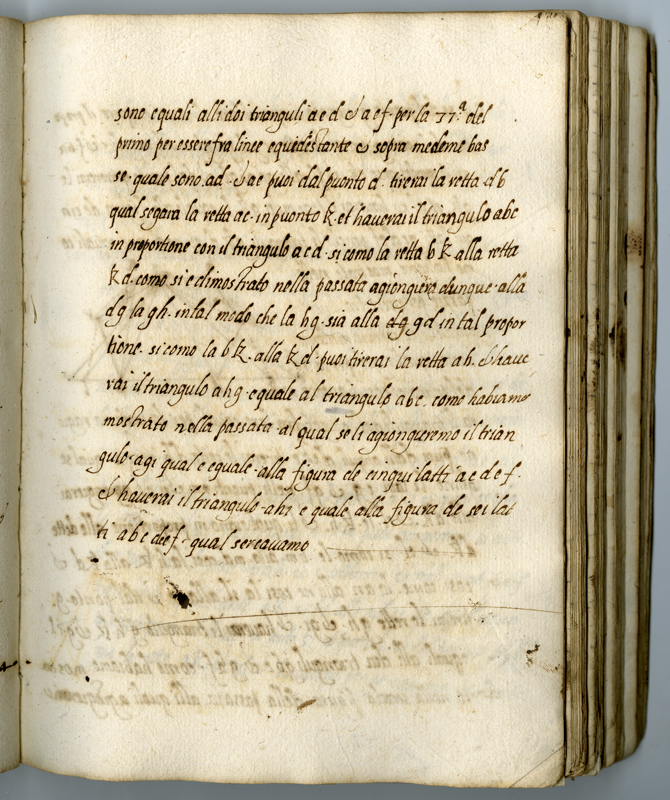 sono equali alli doi trianguli a e d & a e f. per la 37.ª del
primo per essere fra linee equedestante & sopra medeme bas
se. quale sono. ad. & ae puoi dal puonto d. tirerai la retta d b
qual segara la retta ac. in puonto k. et hauerai il triangulo abc
in proportione con il triangulo a c d. si como la retta b k alla retta
k d. como si e dimostrato nella passata agiongiero dunque alla
d g la g h. in tal modo che la hg. sia alla g d in tal propor
tione. si como la b k. alla k d. puoi tirerai la retta a h. & haue
rai il triangulo a h g. equale al triangulo a b c. como habiamo
mostrato nella passata. al qual se li agiongeremo il trian
gulo. a g i qual e equale. alla figura de cinqui latti a c d e f.
& hauerai il triangulo. a h i e quale alla figura de sei lat
ti a b c d e f. qual sercauamo